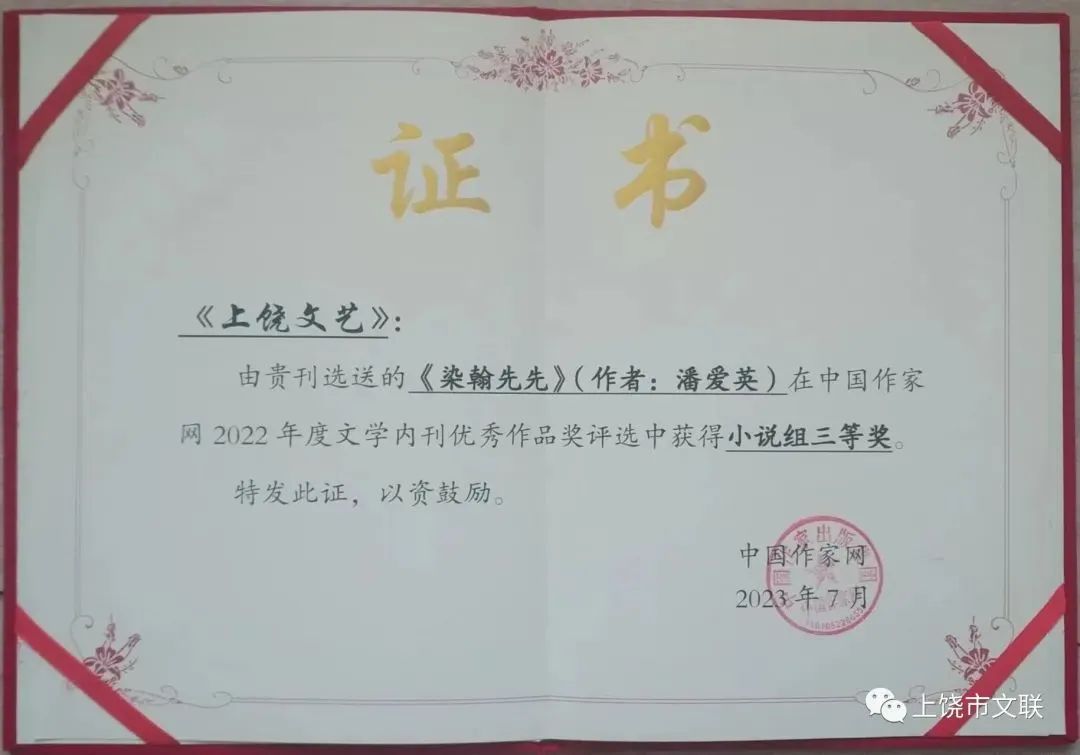 证 书
《上饶文艺》：
由贵刊选送的《染翰先先》（作者：潘爱英）在中国作家
网 2022 年度文学内刊优秀作品奖评选中获得小说组三等奖。
特发此证，以资鼓励。
中国作家网
2023 年 7 月
上饶市文联